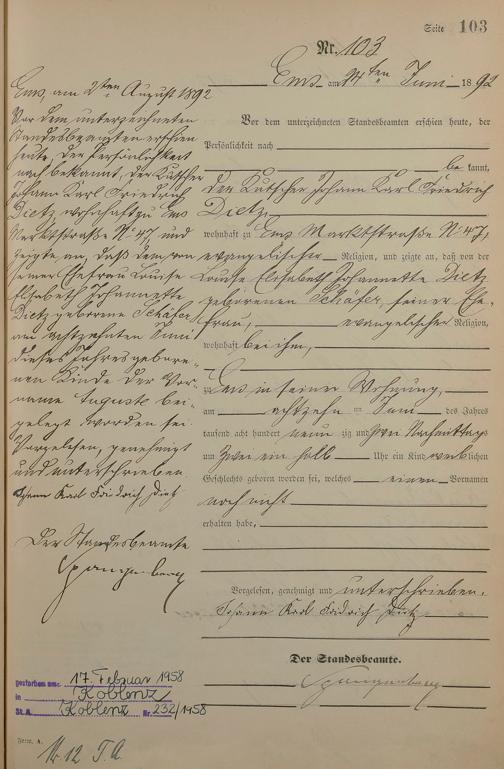 Seite 103
Nr. 103
Ems am 24ten Juni 1892
Vor dem unterzeichneten Standesbeamten erschien heute, der
Persönlichkeit nach
be kannt,
der Kutscher Johann Karl Friedrich
Dietz,
wohnhaft zu Ems Marktstraße No 47,
evangelischer Religion, und zeigte an, daß von der
Louise Elisabeth Johannette Dietz
geborenen Schäfer, seiner Ehe-
frau, evangelischer Religion,
wohnhaft bei ihm,
zu Ems in seiner Wohnung,
am achtzehn ten Juni des Jahres
tausend acht hundert neun zig und zwei Nachmittags
um zwei ein halb Uhr ein Kind weib lichen
Geschlechts geboren worden sei, welches einen Vornamen
noch nicht
erhalten habe,
Vorgelesen, genehmigt und unterschrieben.
Johann Karl Friedrich Dietz
Der Standesbeamte.
Spangenberg
Ems, am 2ten August 1892
Vor dem unterzeichneten
Standesbeamten erschien
heute, der Persönlichkeit
nach bekannt, der Kutscher
Johann Karl Friedrich
Dietz, wohnhaft zu Ems
Marktstraße No 47, und
zeigte an, daß dem von
seiner Ehefrau Louise
Elisabeth Johannette
Dietz geborene Schäfer
am achtzehnten Juni
dieses Jahres gebore-
nen Kinde der Vor-
name Auguste bei-
gelegt worden sei.
Vorgelesen, genehmigt
und unterschrieben
Johann Karl Friedrich Dietz
Der Standesbeamte
Spangenberg
gestorben am: 17. Februar 1958
in Koblenz
St. A. Koblenz Nr. 232/1958
Form. A.